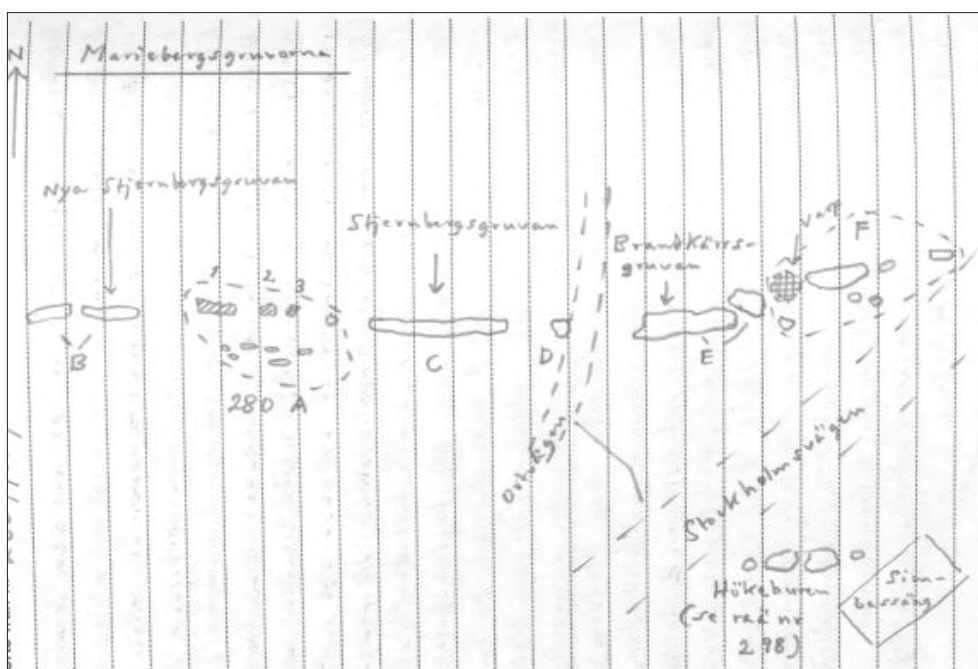 N
Mariebergsgruvorna
Nya Stjernbergsgruvan
Stjernbergsgruvan
Brandkärrs-
gruvan
varp
F
1
2
3
B
280 A
C
D
E
Stockholmsvägen
Hökeburen
(se raä nr
298)
Sim-
bassäng